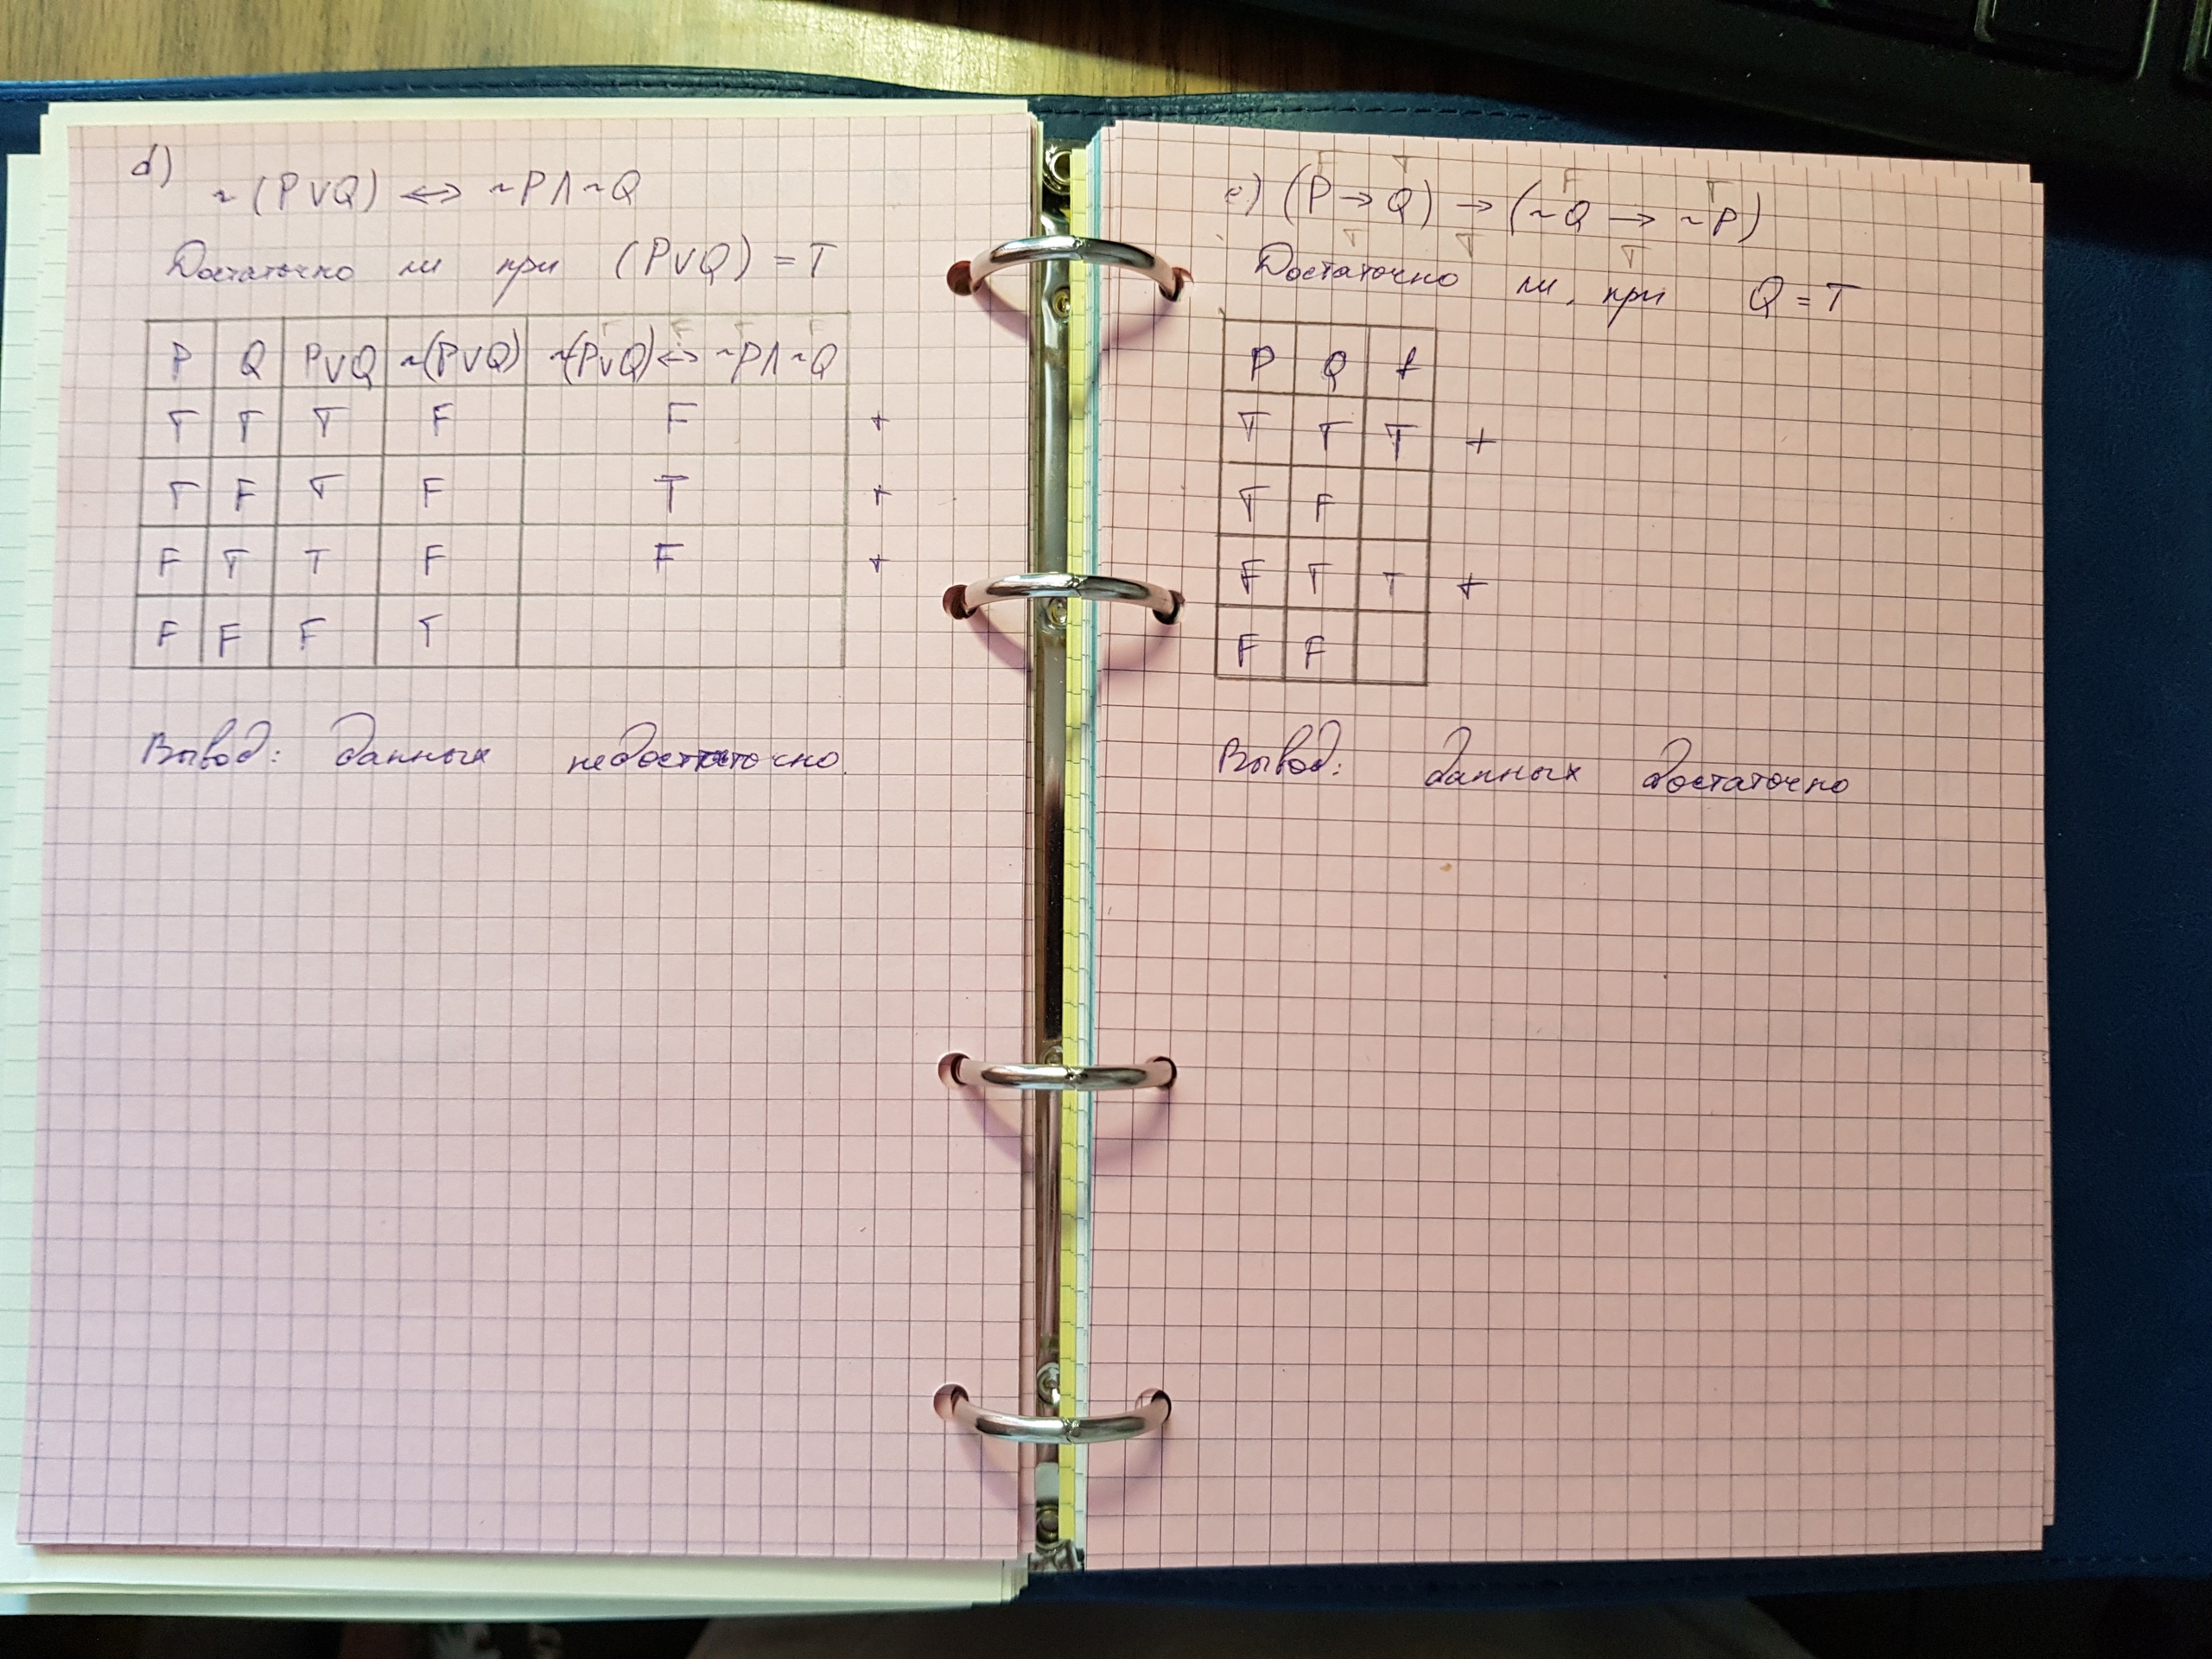 d)
~(P∨Q) ↔ ~P∧~Q
Достаточно ли при (P∨Q) = T
P Q P∨Q ~(P∨Q) ~(P∨Q)↔ ~P∧~Q
T T T F F +
T F T F T +
F T T F F +
F F F T
Вывод: данных недостаточно.
e) (P → Q) → (~Q → ~P)
Достаточно ли, при Q = T
P Q f
T T T +
T F
F T T +
F F
Вывод: данных достаточно